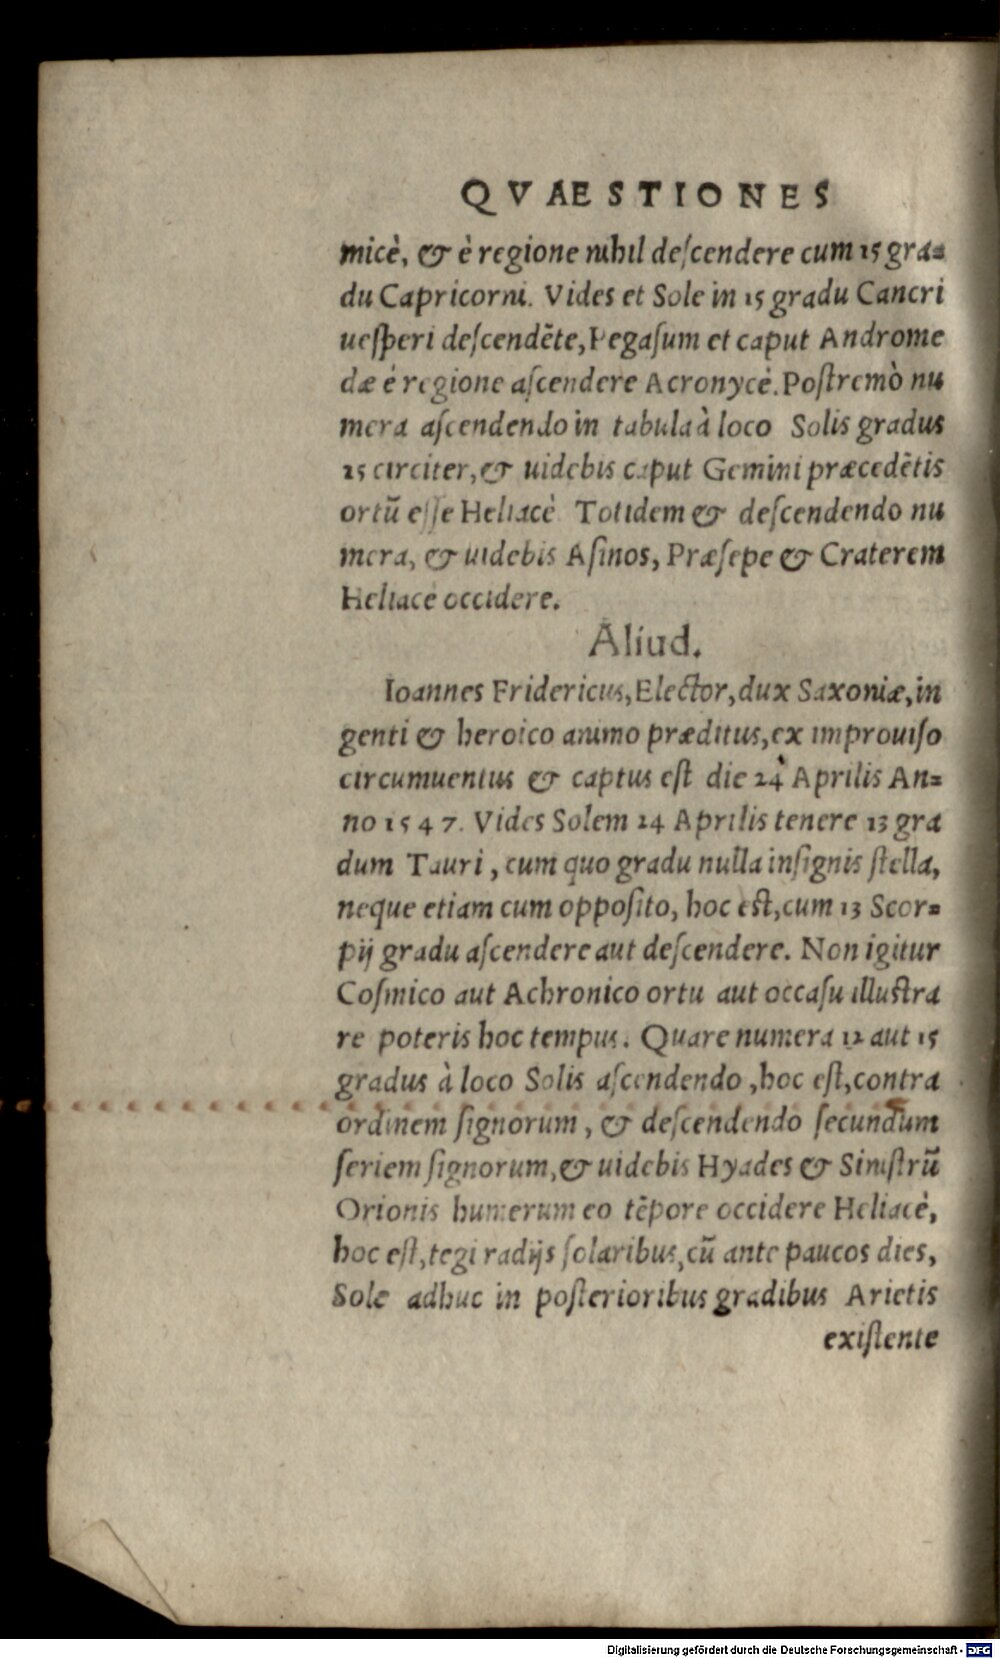 QVAESTIONES
micè, & è regione nihil deſcendere cum 15 gra=
du Capricorni. Vides et Sole in 15 gradu Cancri
ueſperi deſcendēte, Pegaſum et caput Androme
dæ è regione aſcendere Acronycè. Poſtremò nu
mera aſcendendo in tabula à loco Solis gradus
15 circiter, & uidebis caput Gemini præcedētis
ortū eſſe Heliacè Totidem & deſcendendo nu
mera, & uidebis Aſinos, Præſepe & Craterem
Heliacè occidere.
Aliud.
Ioannes Fridericus, Elector, dux Saxoniæ, in
genti & heroico animo præditus, ex improuiſo
circumuentus & captus eſt die 24 Aprilis An=
no 1547. Vides Solem 24 Aprilis tenere 13 gra
dum Tauri, cum quo gradu nulla inſignis ſtella,
neque etiam cum oppoſito, hoc eſt, cum 13 Scor=
pij gradu aſcendere aut deſcendere. Non igitur
Coſmico aut Achronico ortu aut occaſu illuſtra
re poteris hoc tempus. Quare numera 12 aut 15
gradus à loco Solis aſcendendo, hoc eſt, contra
ordinem ſignorum, & deſcendendo ſecundum
ſeriem ſignorum, & uidebis Hyades & Siniſtrū
Orionis humerum eo tēpore occidere Heliacè,
hoc eſt, tegi radijs ſolaribus, cū ante paucos dies,
Sole adhuc in poſterioribus gradibus Arietis
exiſtente
Digitalisierung gefördert durch die Deutsche Forschungsgemeinschaft - DFG